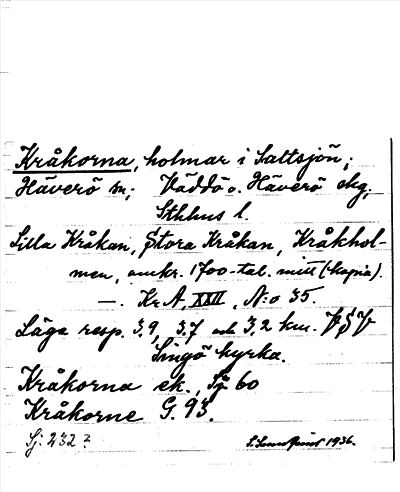 Kråkorna, holmar i Saltsjön;
Häverö sn; Väddö o. Häverö skg;
Sthlms l.
Lilla Kråkan, Stora Kråkan, Kråkhol-
men, omkr. 1700-tal. mitt (kopia).
—. Kr A, XXII, N:o 35.
Läge resp. 3,9, 3,7 och 3,2 km. V§V
Singö kyrka.
Kråkorna ek., Sj 60
Kråkorne G. 93.
Sj. 232 ?
1936.